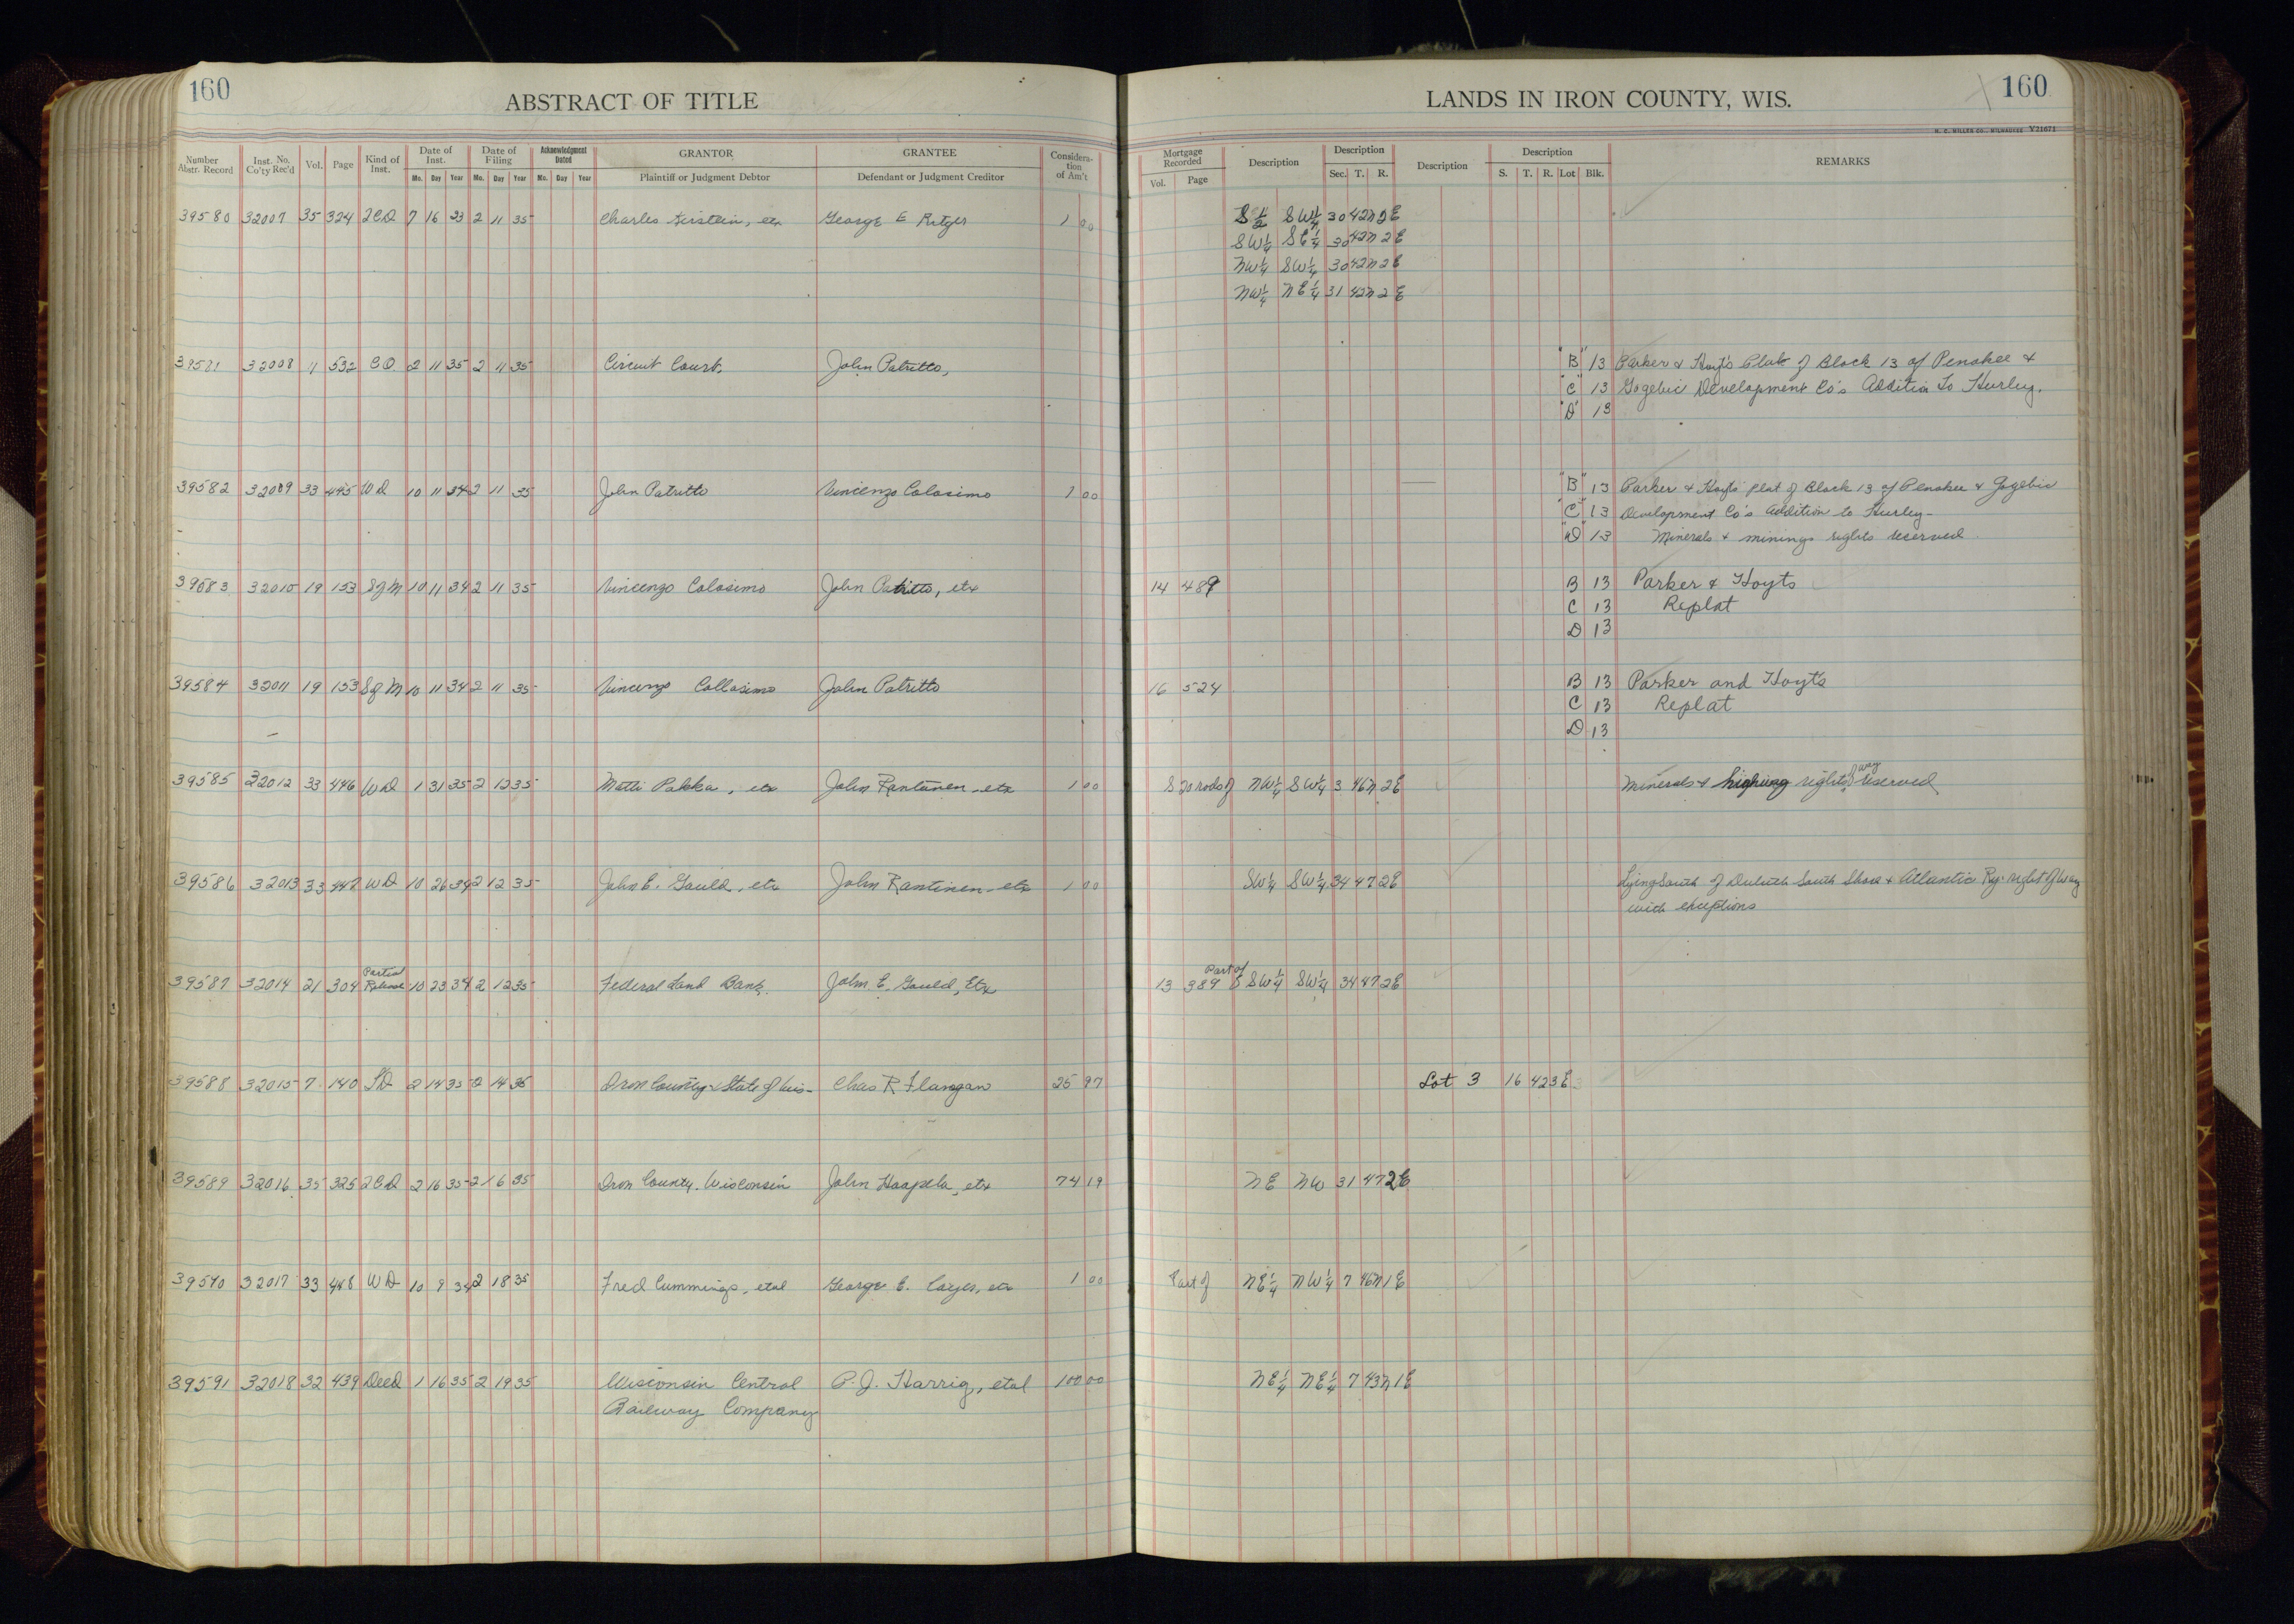 160
ABSTRACT OF TITLE
Number Abstr. Record Inst. No. Co'ty Rec'd Vol. Page Kind of Inst. Date of Inst. Date of Filing Acknowledgment Dated GRANTOR GRANTEE Consideration of Am't
Mo. Day Year Mo. Day Year Mo. Day Year Plaintiff or Judgment Debtor Defendant or Judgment Creditor
39580 32007 35 324 2CD 7 16 33 2 11 35 Charles etx George E Ritger 1 00
39581 32008 11 532 CO 2 11 35 2 11 35 Circuit Court, John Patritto,
39582 32009 33 445 WD 10 11 34 2 11 35 John Patritto Vincenzo Colosimo 1 00
39583 32010 19 153 SgM 10 11 34 2 11 35 Vincenzo Colosimo John Patritto, etx
39584 32011 19 153 Sg M 10 11 34 2 11 35 Vincenzo Collosimo John Patritto
39585 32012 33 446 WD 1 31 35 2 12 35 Matti Pakka, etx John Rantanen etx 1 00
39586 32013 33 447 WD 10 26 34 2 12 35 John E. Gauld, etx John Rantinen etx 1 00
39587 32014 21 304 Partial Release 10 23 34 2 12 35 Federal Land Bank. John E. Gauld, Etx
39588 32015 7 140 TD 2 14 35 2 14 35 Iron County & State of Wis- Chas R Flanagan 25 97
39589 32016 35 325 2CD 2 16 35 2 16 35 Iron County, Wisconsin John Haapala, etx 74 19
39590 32017 33 448 WD 10 9 34 2 18 35 Fred Cummings, etal George E. etx 1 00
39591 32018 32 439 Deed 1 16 35 2 19 35 Wisconsin Central P. J. Harrig, etal 100 00
Railway Company
LANDS IN IRON COUNTY, WIS.
160
H. C. MILLER CO., MILWAUKEE Y21671
Mortgage Recorded Description Description Description Description REMARKS
Vol. Page Sec. T. R. S. T. R. Lot Blk.
S 1/2 SW 1/4 30 42N 2E
SW 1/4 SE 1/4 30 42N 2E
NW 1/4 SW 1/4 30 42N 2E
NW 1/4 NE 1/4 31 42N 2E
"B" 13 Parker & Hoyt's Plat of Block 13 of Penokee &
"C" 13 Gogebic Development Co's Addition to Hurley.
"D" 13
"B" 13 Parker & Hoyts plat of Block 13 of Penokee & Gogebic
"C" 13 Development Co's Addition to Hurley-
"D" 13 Minerals & minings rights reserved
14 489 B 13 Parker & Hoyts
C 13 Replat
D 13
16 524 B 13 Parker and Hoyts
C 13 Replat
D 13
S 20 rods of NW 1/4 SW 1/4 3 46N 2E Minerals & highway rights of way reserved
SW 1/4 SW 1/4 34 47 2E Lying South of Duluth South Shore & Atlantic Ry. right of way
with exceptions
13 389 Part of SW 1/4 SW 1/4 34 47 2E
Lot 3 16 42 3E
NE NW 31 47 2E
Part of NE 1/4 NW 1/4 7 46N 1E
NE 1/4 NE 1/4 7 43N 1E